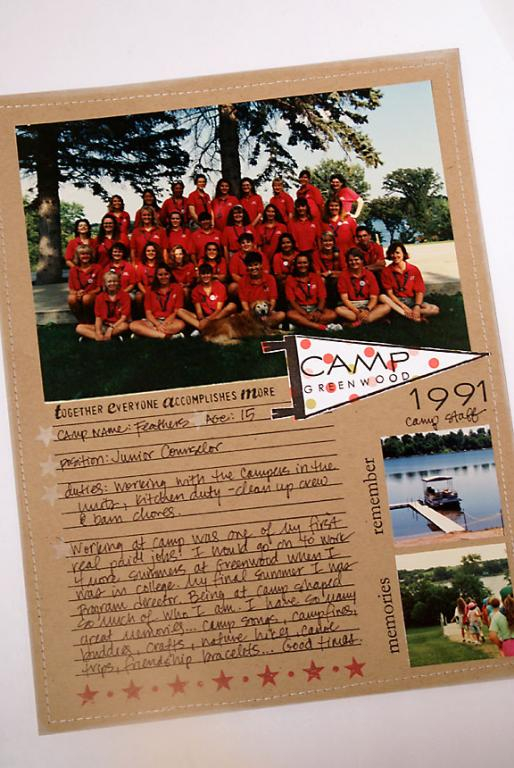 CAMP
GREENWOOD
1991
camp staff
together everyone accomplishes more
CAMP NAME: Feathers AGE: 15
position: Junior Counselor
duties: Working with the campers in the
units, kitchen duty - clean up crew
& barn chores.
Working at camp was one of my first
real paid jobs! I would go on to work
4 more summers at Greenwood when I
was in college. My final summer I was
Program director. Being at camp shaped
so much of who I am. I have so many
great memories... camp songs, campfires,
buddies, crafts, nature hikes, canoe
trips, friendship bracelets... Good times
remember
memories